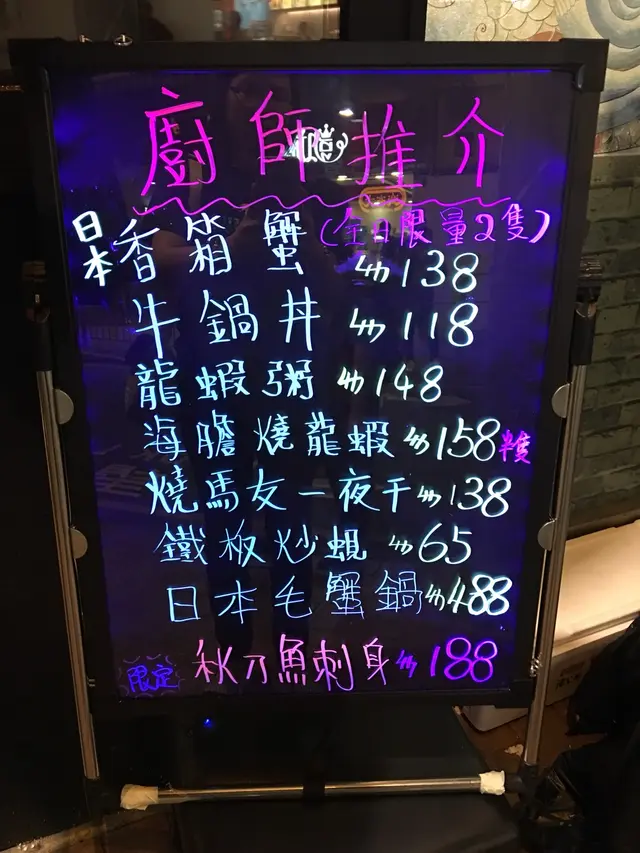 廚師推介
日本香箱蟹(全日限量2隻)
$138
牛鍋丼 $118
龍蝦粥 $148
海膽燒龍蝦 $158半隻
燒馬友一夜干 $138
鐵板炒蜆 $65
日本毛蟹鍋 $488
限定 秋刀魚刺身 $188